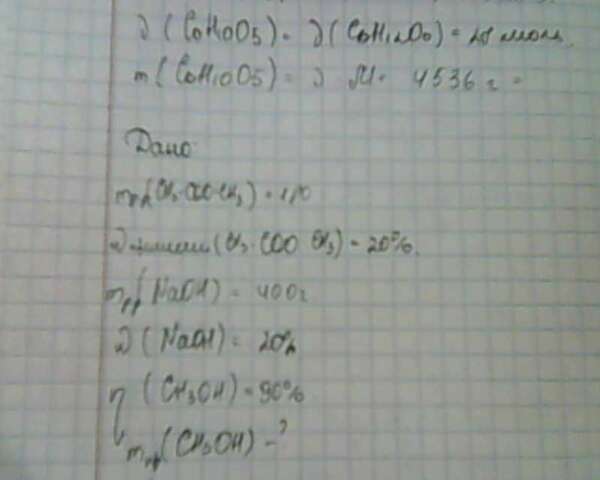 ν(C6H10O5) = ν(C6H12O6) = 28 моль.
m(C6H10O5) = ν M = 4536 г
Дано:
(CH3COOCH3) =
(CH3COOCH3) = 20%.
mр-р(NaOH) = 400г
ω(NaOH) = 20%
η (CH3OH) = 90%
mпр(CH3OH) - ?